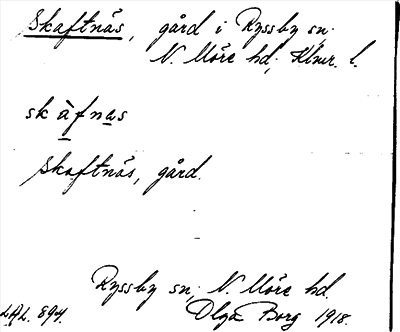 Skaftnäs, gård i Ryssby sn;
N. Möre hd; Klmr. l.
skàfnas
Skaftnäs, gård.
Ryssby sn; N. Möre hd.
LAL. 894. Olga Borg 1918.